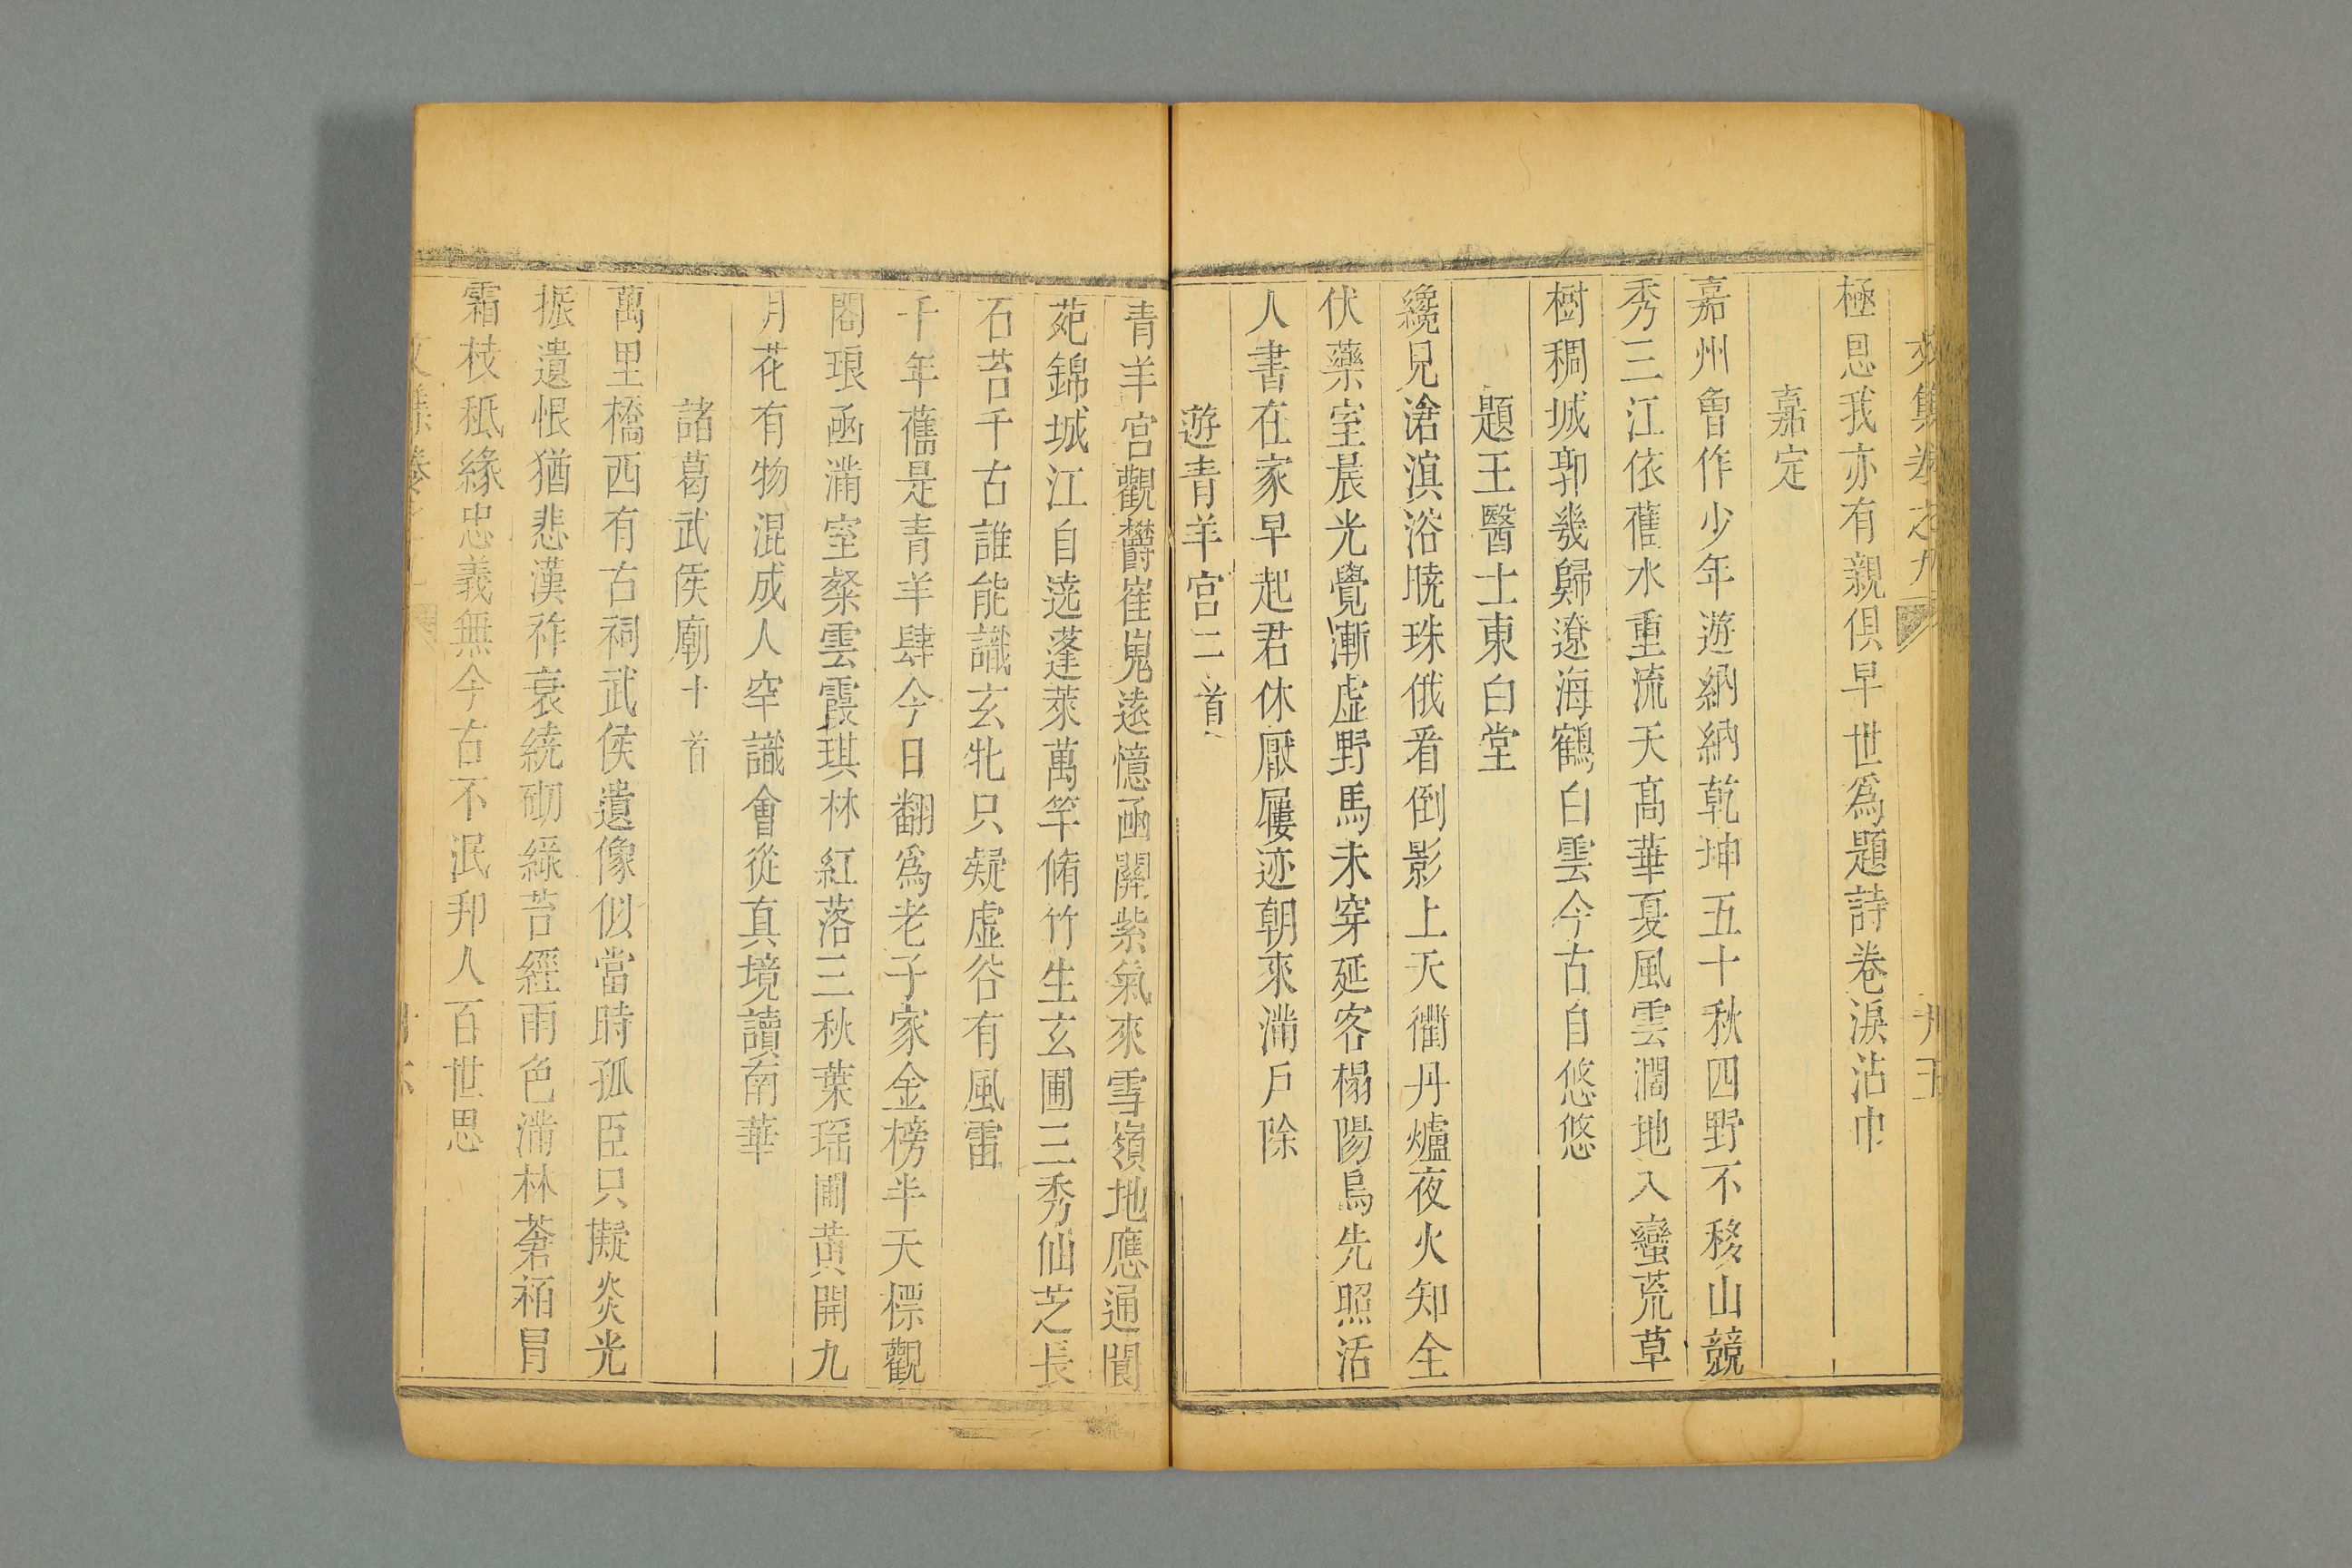 文集卷之九
極思我亦有親俱早世爲題詩卷淚沾巾
嘉定
嘉州曾作少年遊納納乾坤五十秋四野不移山競
秀三江依舊水重流天高華夏風雲濶地入蠻荒草
樹稠城郭幾歸遼海鶴白雲今古自悠悠
題王醫士東白堂
纔見滄溟浴曉珠俄看倒影上天衢丹爐夜火知全
伏藥室晨光覺漸虛野馬未穿延客榻陽烏先照活
人書在家早起君休厭屨迹朝來滿戶除
遊青羊宮二首
青羊宮觀欝崔嵬遠憶函關紫氣來雪嶺地應通閬
苑錦城江自遶蓬萊萬竿脩竹生玄圃三秀仙芝長
石苔千古誰能識玄牝只疑虛谷有風雷
千年舊是青羊肆今日翻爲老子家金榜半天標觀
閣琅函滿室粲雲霞琪林紅落三秋葉瑤圃黃開九
月花有物混成人罕識會從真境讀南華
諸葛武侯廟十首
萬里橋西有古祠武侯遺像似當時孤臣只擬炎光
振遺恨猶悲漢祚衰繞砌綠苔經雨色滿林蒼柏冒
霜枝秪緣忠義無今古不泯邦人百世思